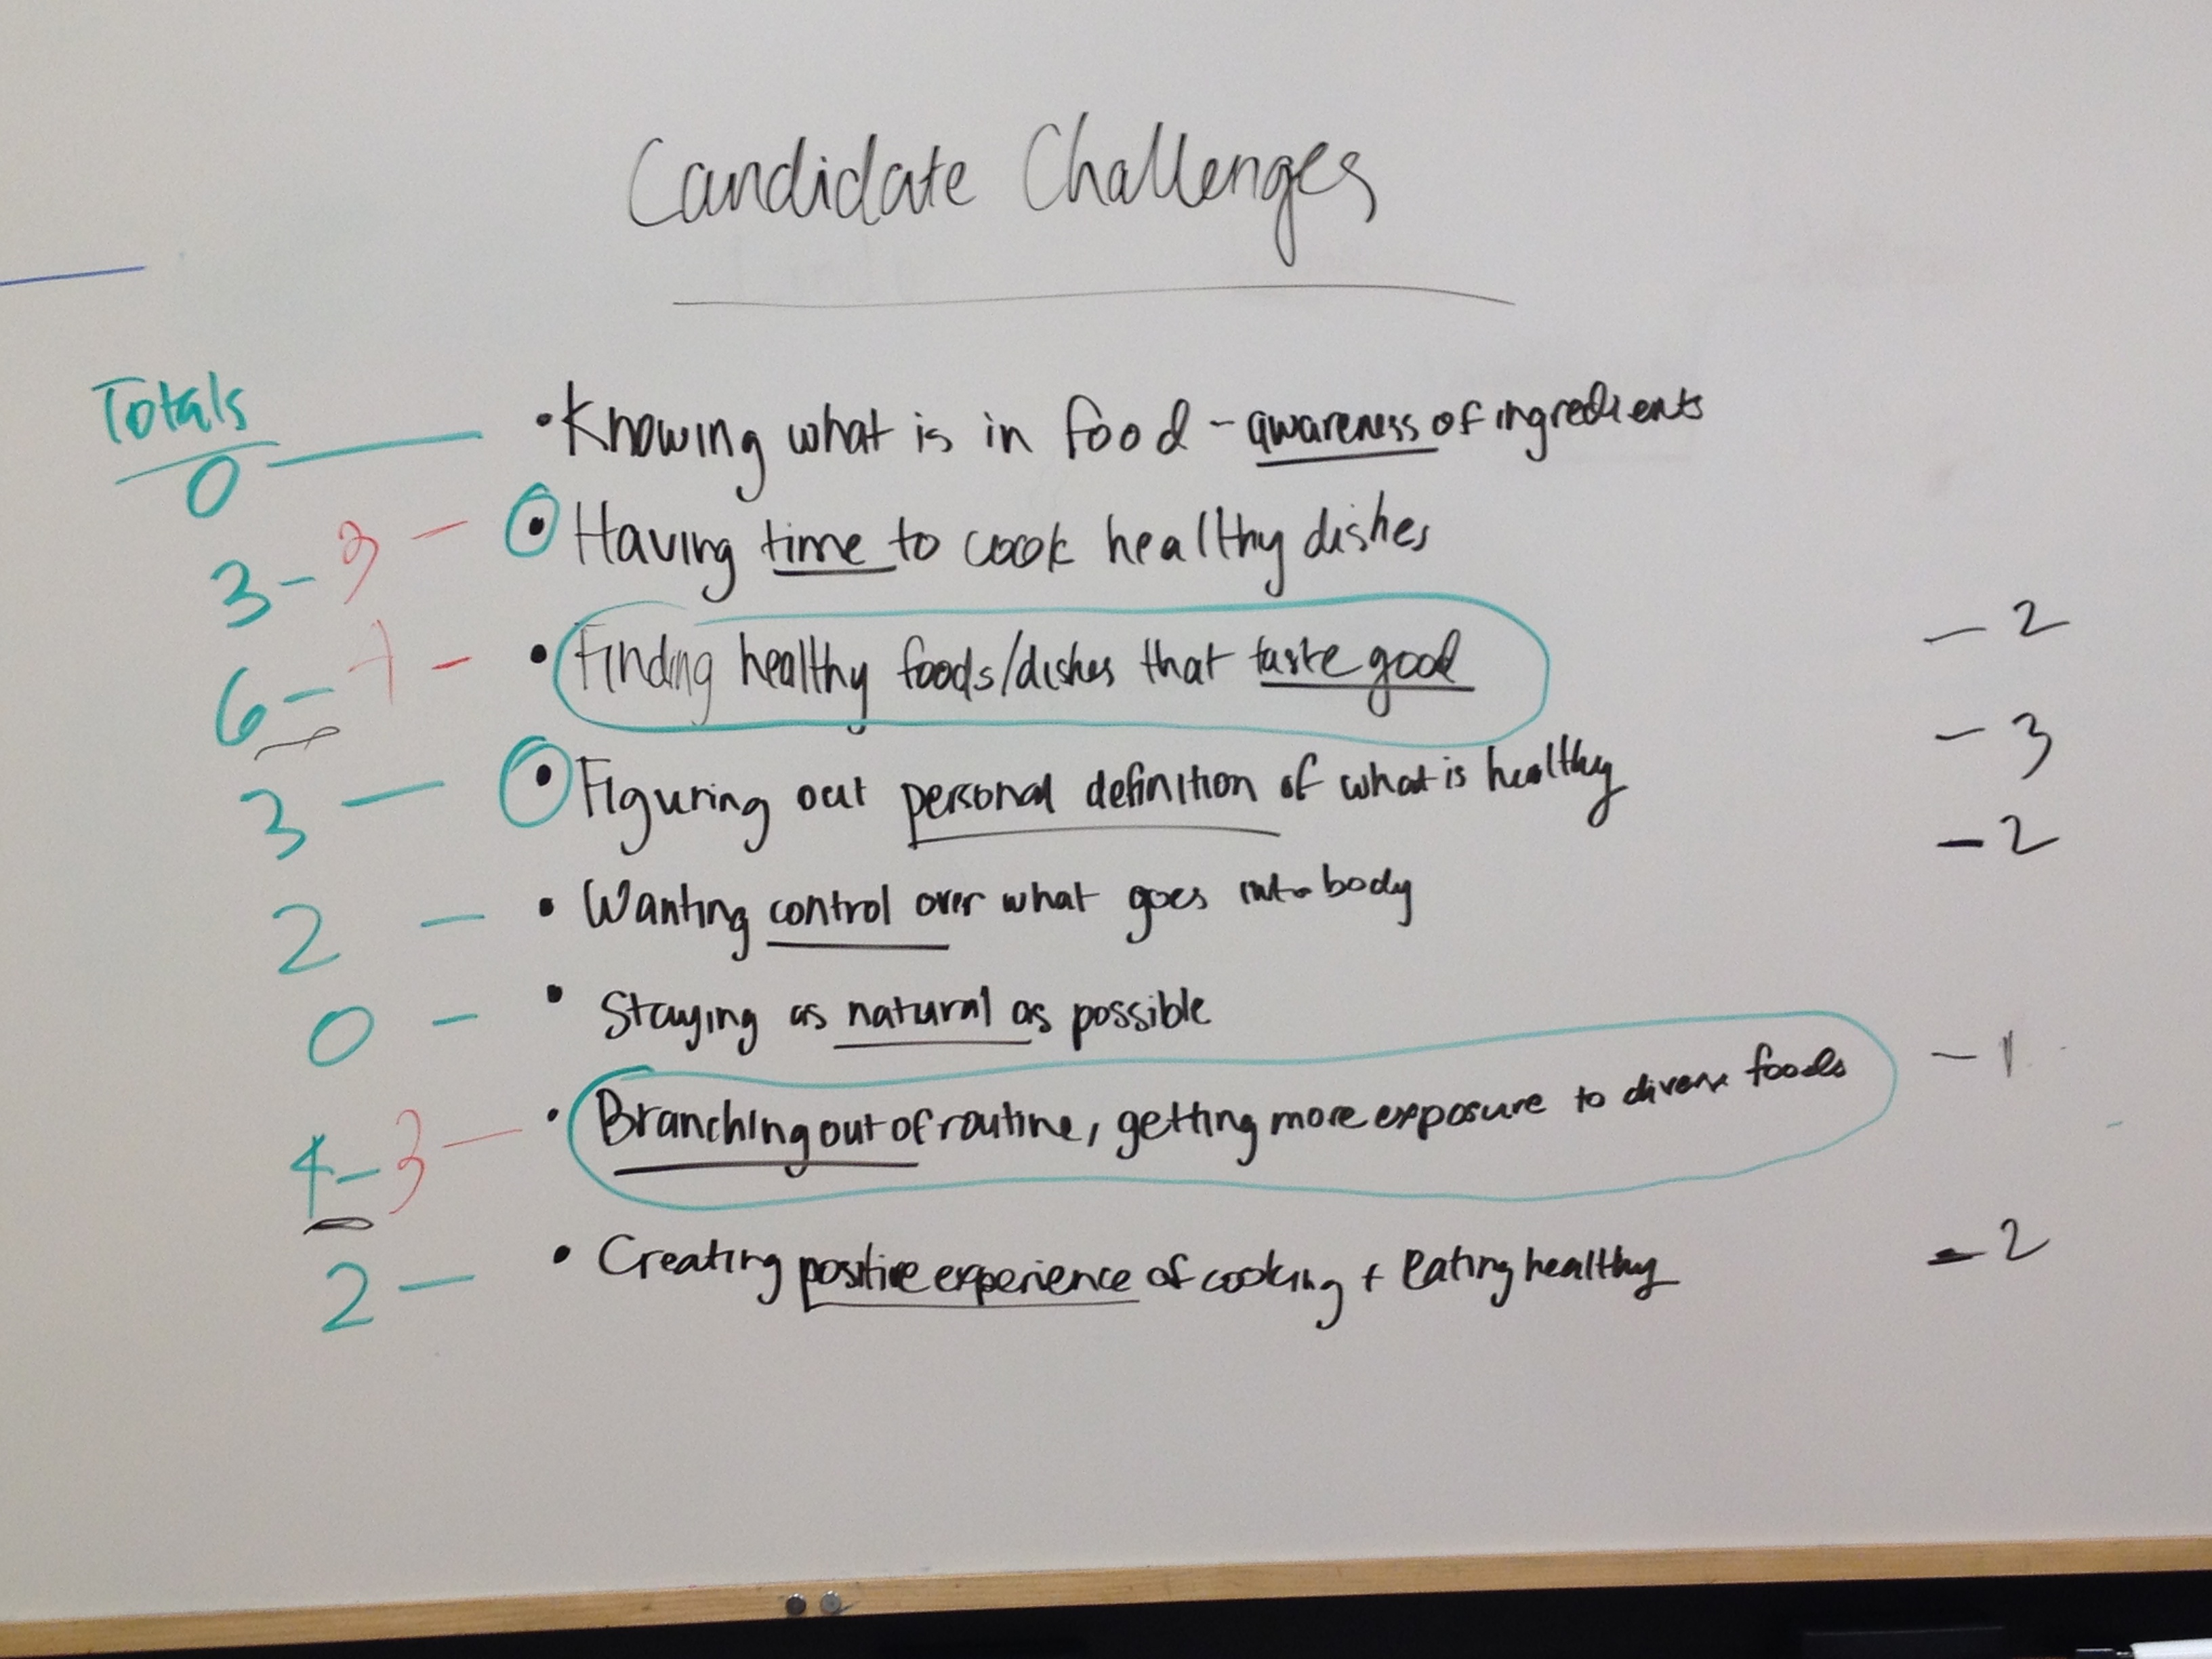 Candidate Challenges
Totals
0 — • Knowing what is in food - awareness of ingredients
3 - 3 — • Having time to cook healthy dishes
6 - — • Finding healthy foods/dishes that taste good — 2
3 — • Figuring out personal definition of what is healthy — 3
2 — • Wanting control over what goes into body — 2
0 — • Staying as natural as possible
4 - 3 — • Branching out of routine, getting more exposure to diverse foods — 1
2 — • Creating positive experience of cooking + eating healthy — 2